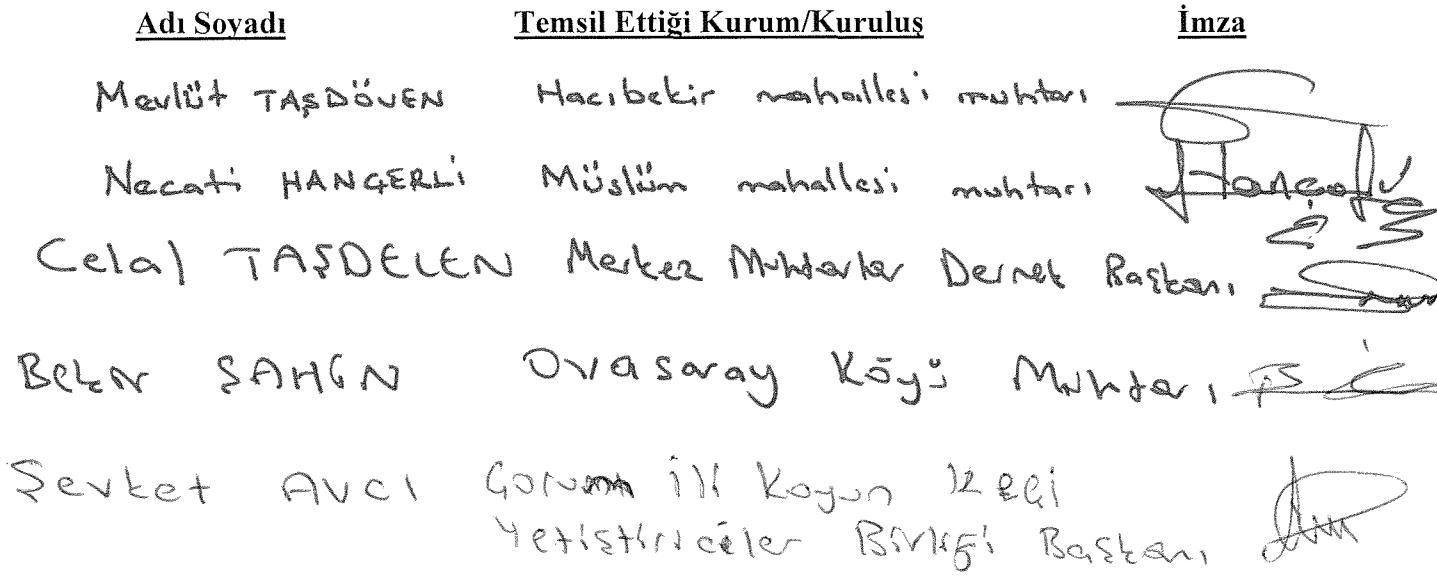 Adı Soyadı Temsil Ettiği Kurum/Kuruluş İmza
Mevlüt TAŞDÖVEN Hacıbekir mahallesi muhtarı
Necati HANÇERLİ Müslüm mahallesi muhtarı
Celal TAŞDELEN Merkez Muhtarlar Dernek Başkanı
Bekir ŞAHİN Ovasaray Köyü Muhtarı
Şevket AVCI Çorum ili Koyun Keçi
Yetiştiriciler Birliği Başkanı